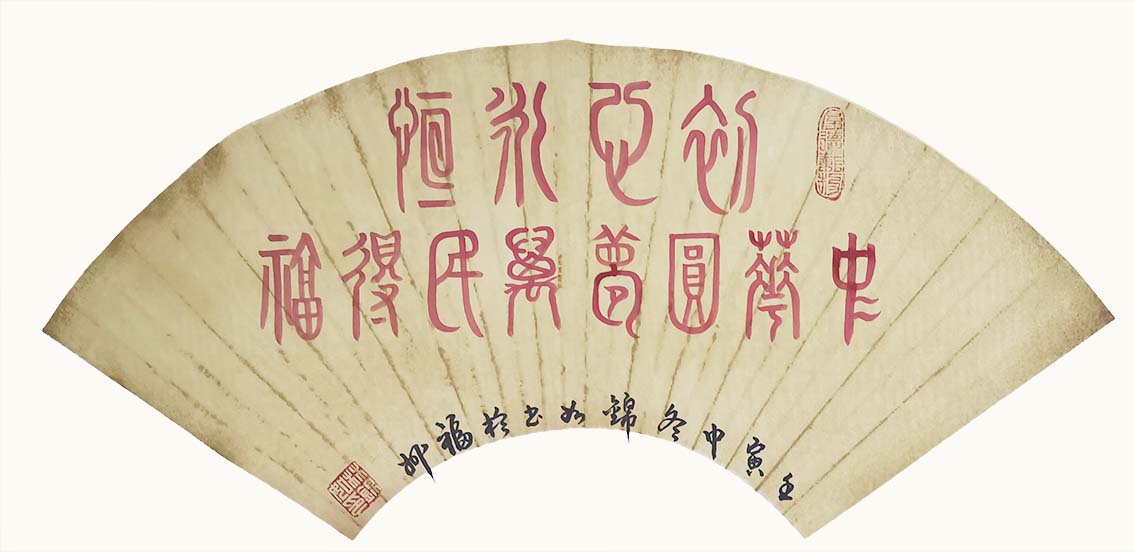 初心永恆
中華圓夢萬民得福
壬寅中冬錦如书於福州